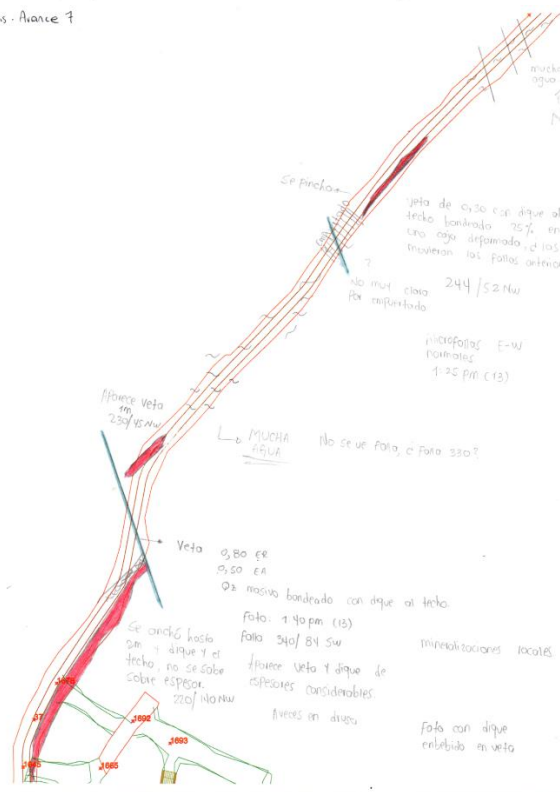 Avance 7
agua
Se pincha
veta de 0,30 con dique al
techo bandeada 25% en
una caja deformada, ¿ las
movieron las fallas
?
No muy clara
Por enfuertado
244/52 NW
microfallas E-W
normales
1:25 pm (13)
Aparece Veta
1m
230/45 NW
MUCHA
AGUA
No se ve falla, ¿ Falla 330?
Veta
0,80 ER
0,50 EA
Qz masivo bandeado con dique al techo.
Foto: 1:40 pm (13)
Falla 340/84 SW
mineralizaciones locales
Se anchó hasta
2m y dique y el
techo, no se sabe
sobre espesor.
220/40 NW
Aparece veta y dique de
espesores considerables.
Aveces en drusa
Foto con dique
enbebido en veta
1676
37
1692
1693
1645
1665